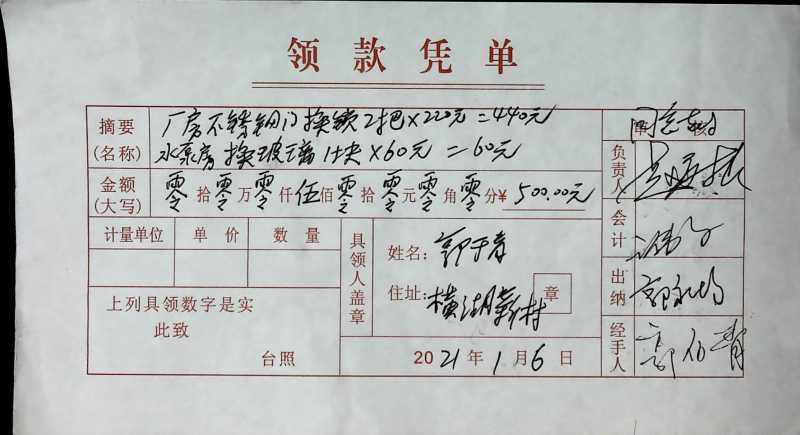 领款凭单
摘要(名称) 厂房不锈钢门换锁2把×220元=440元
水泵房换玻璃1块×60元=60元
金额(大写) 零拾零万零仟伍佰零拾零元零角零分¥500.00元
计量单位 单价 数量
上列具领数字是实
此致
台照
具领人盖章
姓名:
住址: 横湖新村 章
2021年1月6日
同意
负责人
会计
出纳
经手人 郭